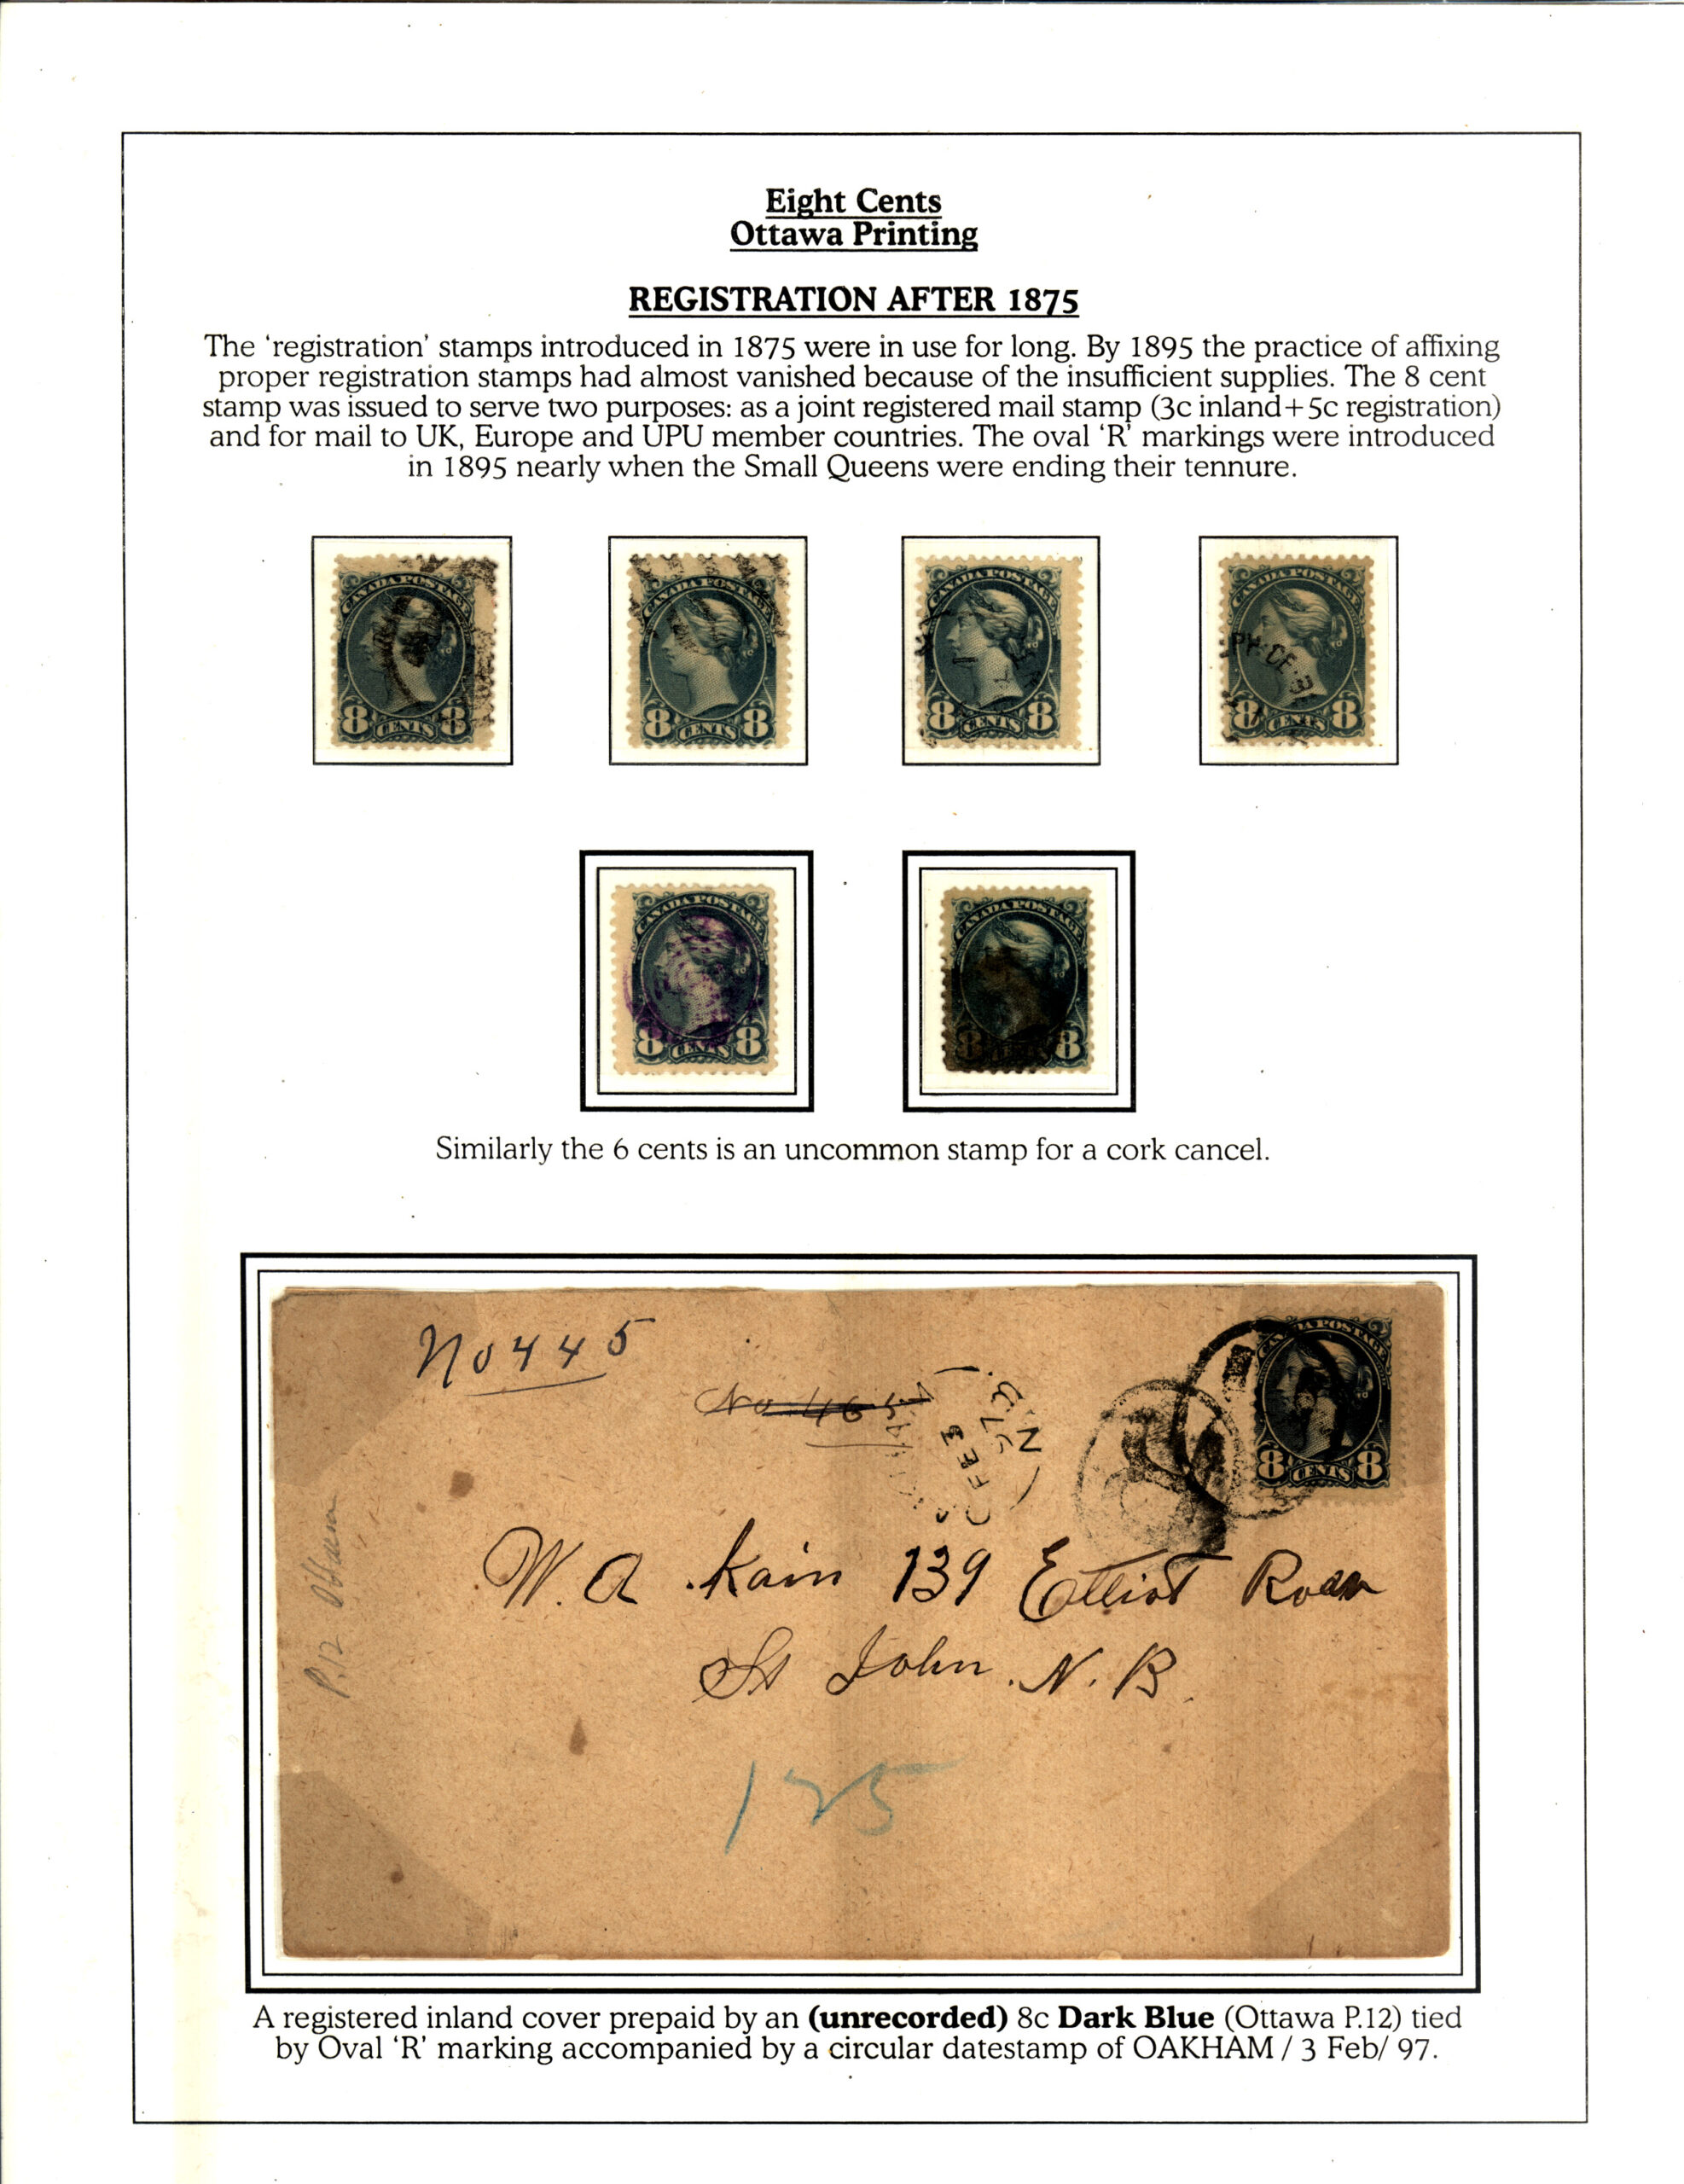 Eight Cents
Ottawa Printing
REGISTRATION AFTER 1875
The ‘registration’ stamps introduced in 1875 were in use for long. By 1895 the practice of affixing
proper registration stamps had almost vanished because of the insufficient supplies. The 8 cent
stamp was issued to serve two purposes: as a joint registered mail stamp (3c inland+5c registration)
and for mail to UK, Europe and UPU member countries. The oval ‘R’ markings were introduced
in 1895 nearly when the Small Queens were ending their tennure.
CANADA POSTAGE
8 CENTS 8
CANADA POSTAGE
8 CENTS 8
CANADA POSTAGE
8 CENTS 8
CANADA POSTAGE
PM DE 31
8 CENTS 8
CANADA POSTAGE
8 CENTS 8
CANADA POSTAGE
8 8
Similarly the 6 cents is an uncommon stamp for a cork cancel.
No 445
CANADA POSTAGE
8 CENTS 8
R
FE 3
97
N.B.
W. A. Kain 139 Elliot Row
St John. N. B.
125
P.12 Ottawa
A registered inland cover prepaid by an (unrecorded) 8c Dark Blue (Ottawa P.12) tied
by Oval ‘R’ marking accompanied by a circular datestamp of OAKHAM / 3 Feb/ 97.